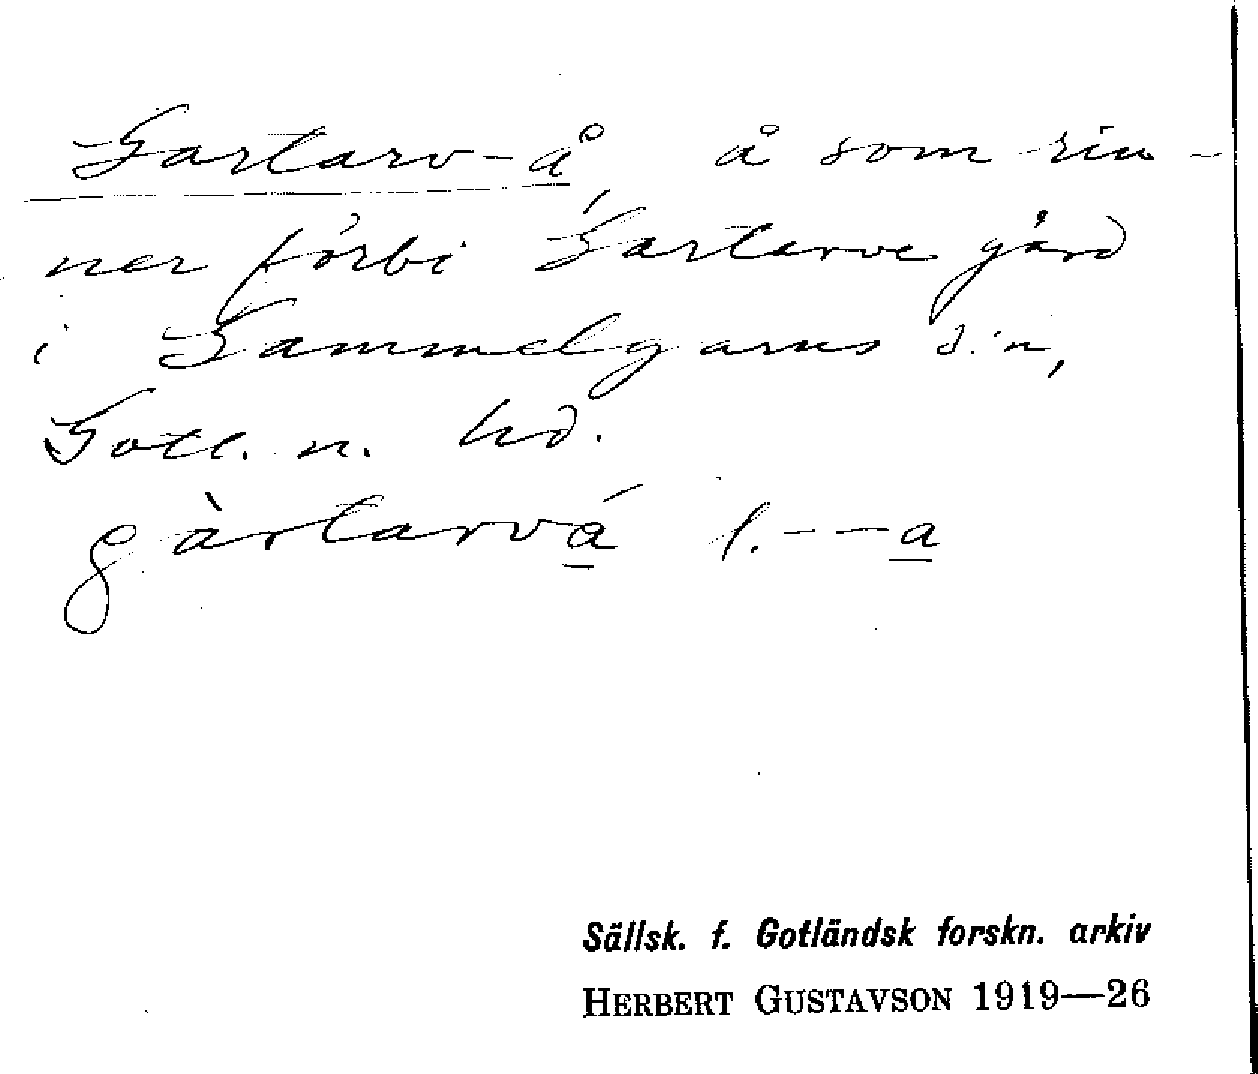 Gartarv-å, å som rin-
ner förbi Gartarve gård
i Gammelgarns s:n,
Gotl. n. hd.
gàrtarvá l. - - - a
Sällsk. f. Gotländsk forskn. arkiv
HERBERT GUSTAVSON 1919—26